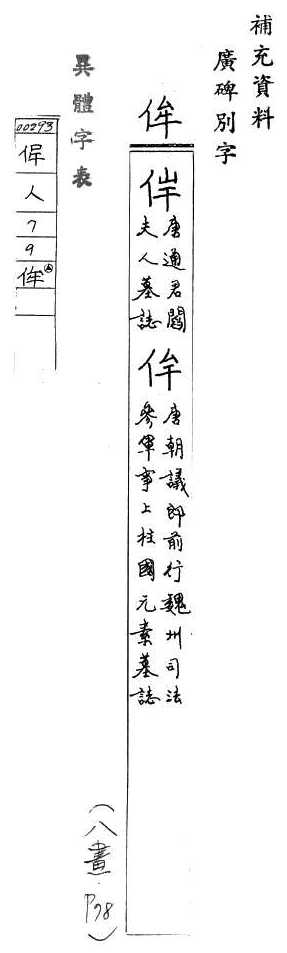 補充資料
廣碑別字
侔
𬽡 唐通君閻夫人墓誌 侔 唐朝議郎前行魏州司法參軍事上柱國元素墓誌
（八畫 P78）
異體字表
00293
人
7
9
侔